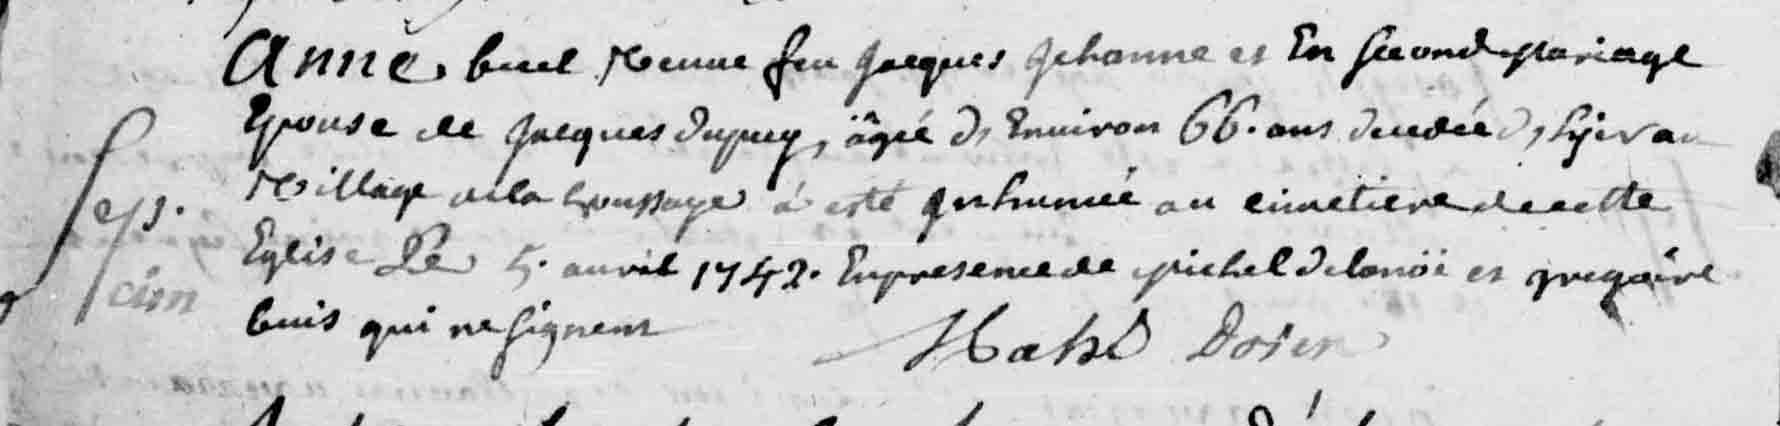 Anne buel Veuve feu Jacques Jehanne et En Second Mariage
Epouse de Jacques dupuy, âgée d'Environ 66. ans decedée d'hyer au
Village de la houssaye à esté Inhumée au cimetiere de cette
Eglise Le 5. auvril 1742. En presence de Michel delanöe et gregoire
buis qui ne signent
Mahé Doien
Sep.
cim